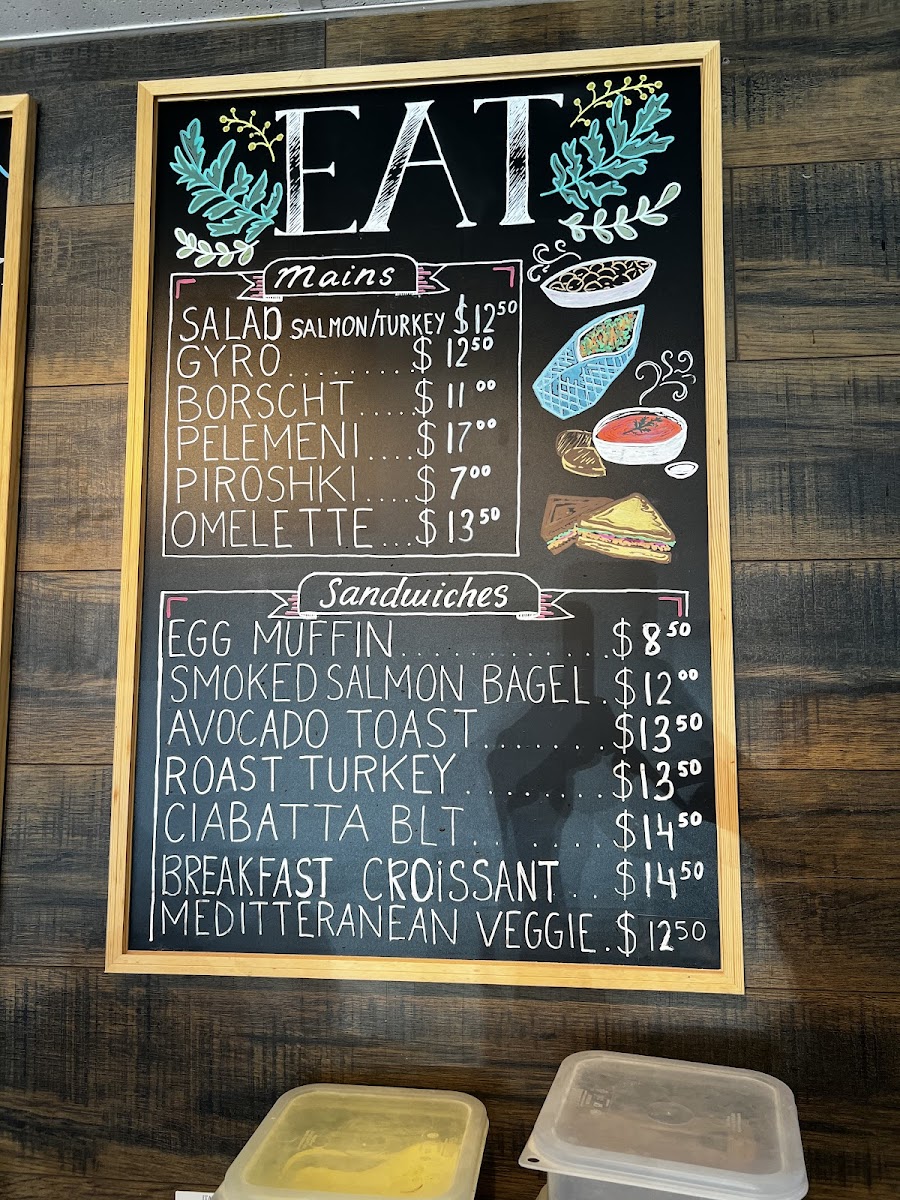 EAT
Mains
SALAD SALMON/TURKEY $12⁵⁰
GYRO.........$12⁵⁰
BORSCHT.....$11⁰⁰
PELEMENI....$17⁰⁰
PIROSHKI....$7⁰⁰
OMELETTE...$13⁵⁰
Sandwiches
EGG MUFFIN..............$8⁵⁰
SMOKED SALMON BAGEL.$12⁰⁰
AVOCADO TOAST........$13⁵⁰
ROAST TURKEY.........$13⁵⁰
CIABATTA BLT........$14⁵⁰
BREAKFAST CROiSSANT..$14⁵⁰
MEDITTERANEAN VEGGIE.$12⁵⁰